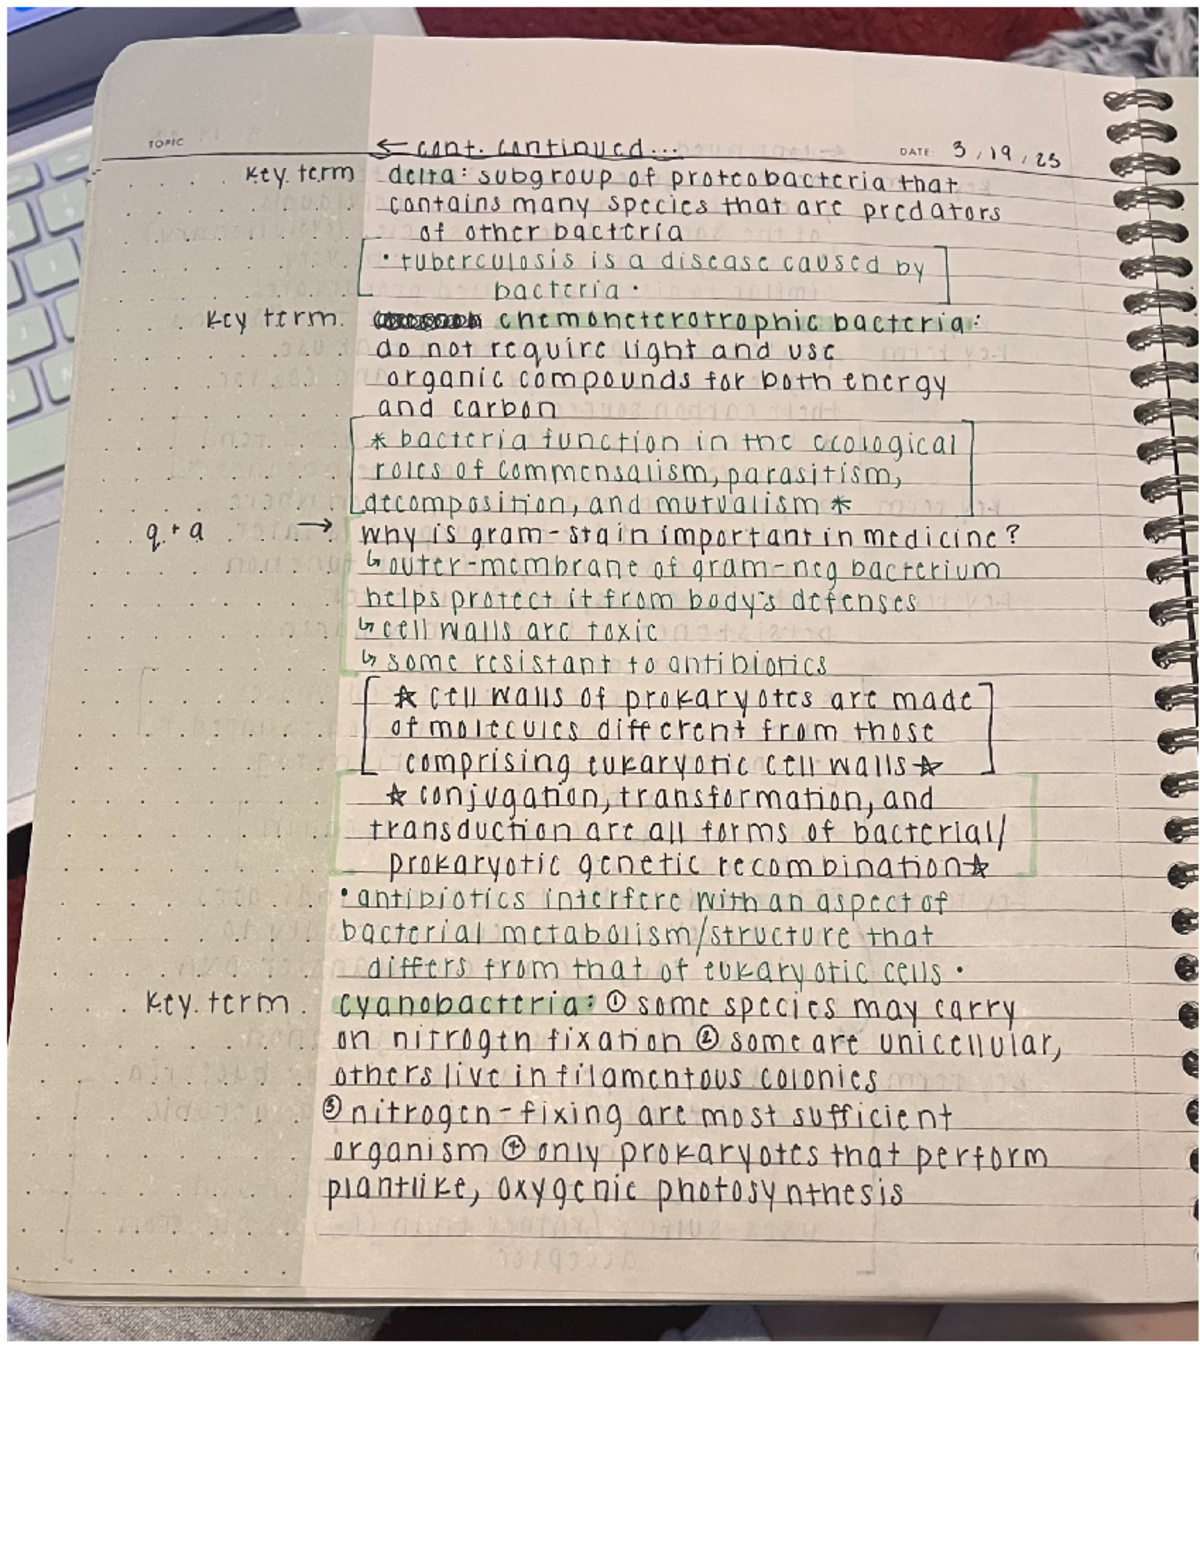 TOPIC
← cont. continued...
DATE: 3/19/23
key term
delta: subgroup of proteobacteria that
contains many species that are predators
of other bacteria
• tuberculosis is a disease caused by
bacteria •
key term
chemoheterotrophic bacteria:
do not require light and use
organic compounds for both energy
and carbon
* bacteria function in the ecological
roles of commensalism, parasitism,
decomposition, and mutualism *
q + a →
why is gram-stain important in medicine?
↳ outer-membrane of gram-neg bacterium
helps protect it from body's defenses
↳ cell walls are toxic
↳ some resistant to antibiotics
☆ cell walls of prokaryotes are made
of molecules different from those
comprising eukaryotic cell walls ☆
☆ conjugation, transformation, and
transduction are all forms of bacterial/
prokaryotic genetic recombination ☆
• antibiotics interfere with an aspect of
bacterial metabolism/structure that
differs from that of eukaryotic cells •
key term
cyanobacteria: ① some species may carry
on nitrogen fixation ② some are unicellular,
others live in filamentous colonies
③ nitrogen-fixing are most sufficient
organism ④ only prokaryotes that perform
plantlike, oxygenic photosynthesis